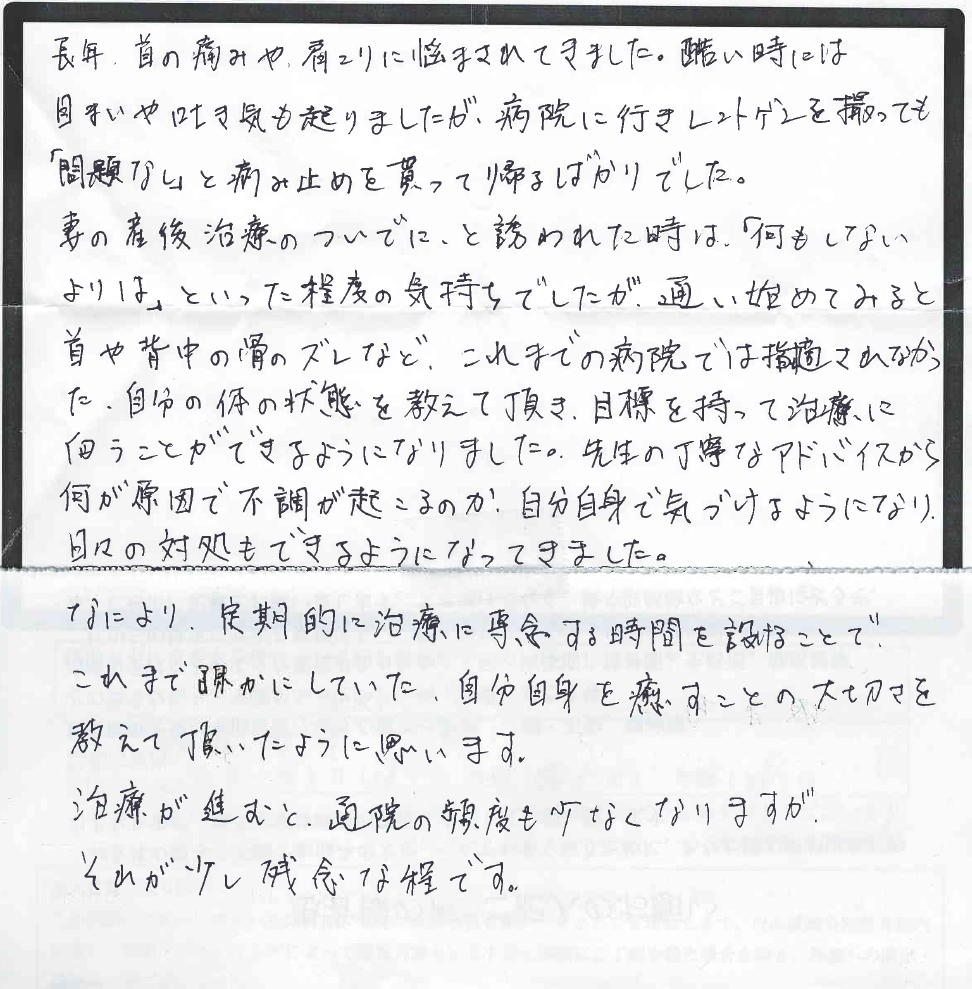 長年、首の痛みや、肩こりに悩まされてきました。酷い時には
目まいや吐き気も起りましたが、病院に行きレントゲンを撮っても
「問題なし」と痛み止めを貰って帰るばかりでした。
妻の産後治療のついでに、と誘われた時は、「何もしない
よりは」といった程度の気持ちでしたが、通い始めてみると
首や背中の骨のズレなど、これまでの病院では指摘されなかっ
た、自分の体の状態を教えて頂き、目標を持って治療に
向うことができるようになりました。先生の丁寧なアドバイスから
何が原因で不調が起こるのか、自分自身で気づけるようになり、
日々の対処もできるようになってきました。
なにより、定期的に治療に専念する時間を設けることで、
これまで疎かにしていた、自分自身を癒すことの大切さを
教えて頂いたように思います。
治療が進むと、通院の頻度も少なくなりますが、
それが少し残念な程です。